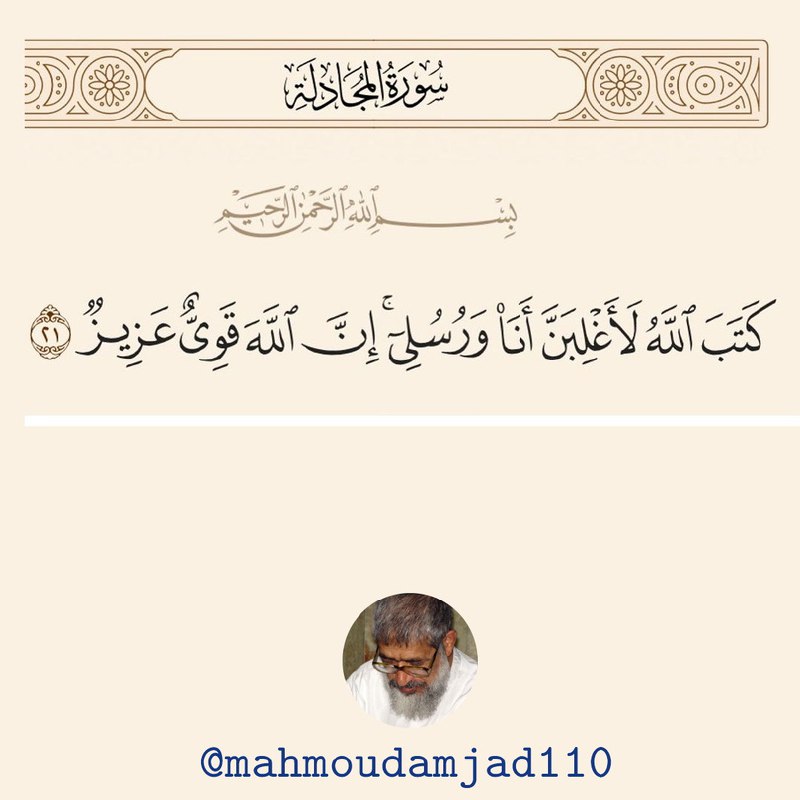 سُورَةُ المُجَادلَةِ
بِسْمِ ٱللَّهِ ٱلرَّحْمَٰنِ ٱلرَّحِيمِ
كَتَبَ ٱللَّهُ لَأَغْلِبَنَّ أَنَا۠ وَرُسُلِىٓ ۚ إِنَّ ٱللَّهَ قَوِىٌّ عَزِيزٌ ٢١
@mahmoudamjad110